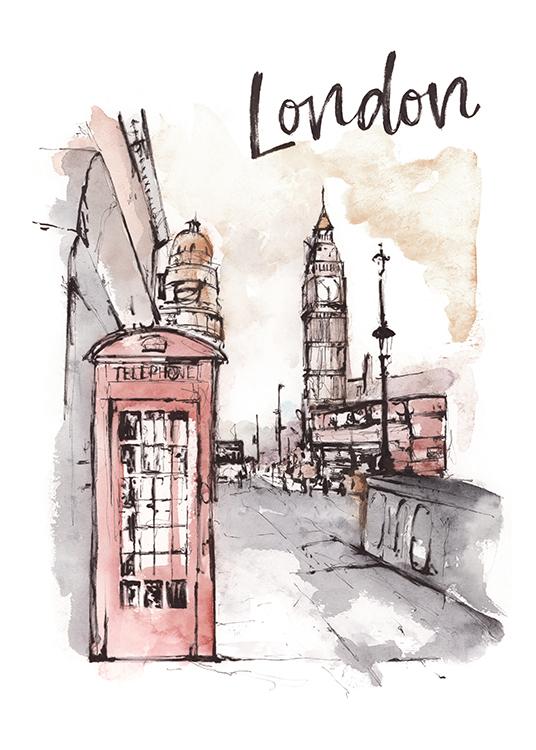 London
TELEPHONE